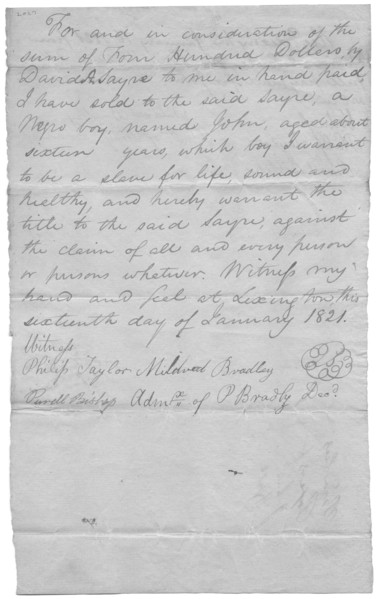 For and in consideration of the
sum of Four Hundred Dollers, by
David A Sayre to me in hand paid,
I have sold to the said Sayre, a
Negro boy, named John, aged about
sixteen years, which boy I warant
to be a slave for life, sound and
healthy, and hereby warrant the
title to the said Sayre, against
the claim of all and every person
or persons whatever. Witness my
hand and seal at Lexington this
sixteenth day of January 1821.
Witness
Philip Taylor Mildred Bradley
Bishop Admx of P Bradly Decd